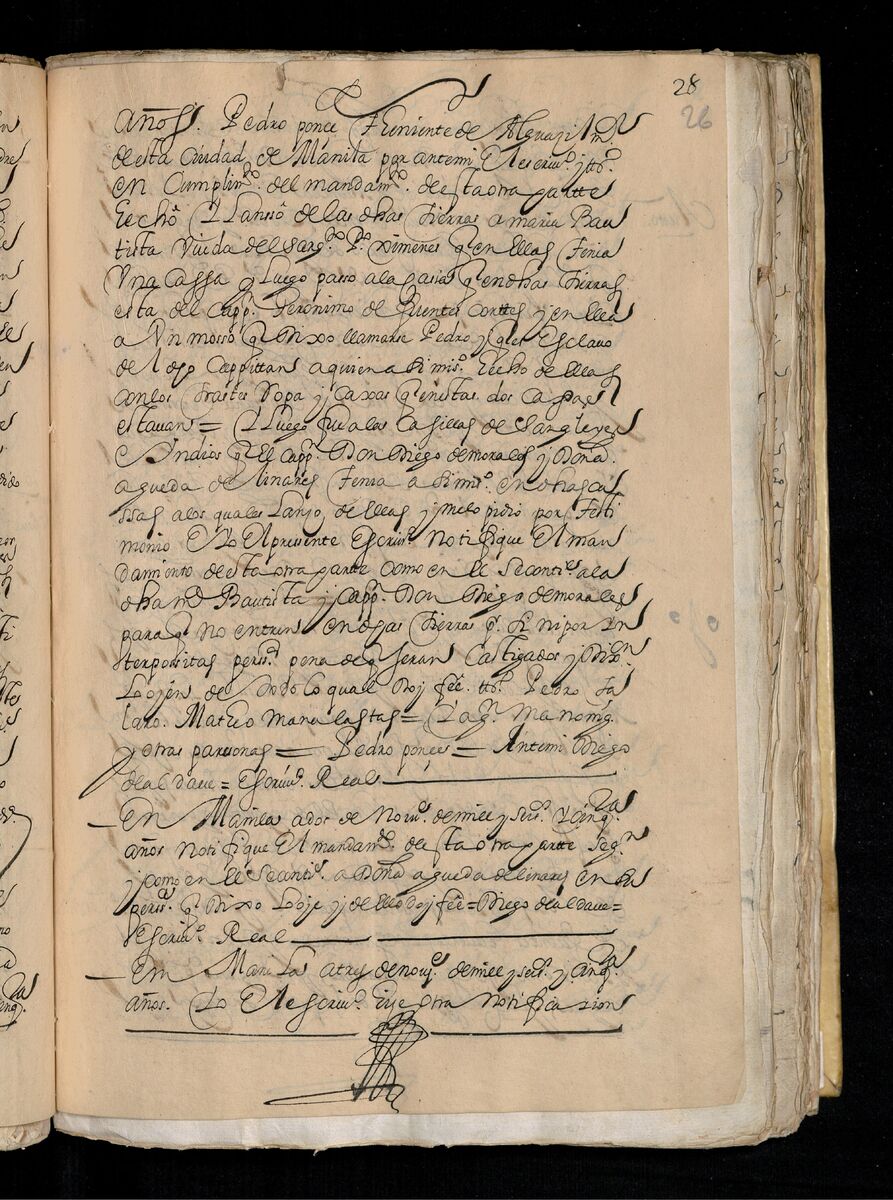 28
26
años. Pedro ponçe Theniente de Alguazil mr
de esta Ciudad de Manila por antemi El escriuº. y ttºs.
en Cumplimº. del mandamº. de esta otra partte
hechó Y Lanssó de las dhas tierras a maria Bau
tista Viuda del Sargtº. Pº. ximenes q en ellas tenia
Una Cassa y Luego passo a la q en dhas tierras
esta del Cappn. Geronimo de fuentes Corttes y en ella
a Un mosso q Dixo llamarse Pedro y q es Esclauo
de l dho Cappittan a quien a si misº. hecho de ellas
con los trastes Ropa y Caxas q en estas dos Cassas
estauan = Y Luego fue a las Casillas de Sangleyes
E Yndios q El Cappn. Don Diego de morales y Doña.
agueda de linares tenia a si misº. en dhas ca
ssas a los quales Lanso de ellas y me lo pidio por testi
monio E Yo El pressente Escriuº. Notifique El man
damiento de esta otra partte Como en el se Contiᵉ. a la
dha mᵃ Bautista y Cappn. Don Diego de morales
para q No entren en dhas tierras pr. si ni por in
terpositas perssᵃˢ. pena de q seran Castigados y Dixᵒⁿ.
Lo oyen de todo lo qual Doy feé. ttºs. Pedro fa
laro. Matheo manalastas = Y agn. Manomig.
y otras personas = Pedro ponçe = Antemi Diego
de aldaue = Escriuº. Real
En Manila a dos de Nouᵉ. de mill y seisº. y cinqᵗᵃ
años notifique El mandamº. de esta otra partte segn
y como en el se Contiᵉ. a Doña agueda de linares en su
perssᵃ. q Dixo Lo oye y de ello doy feé = Diego de aldaue =
Escriuº. Real
En Manila a tres de nouᵉ. de mill y seisº. y cinqᵗᵃ.
años. Yo El escriuº. hise otra Notificazion